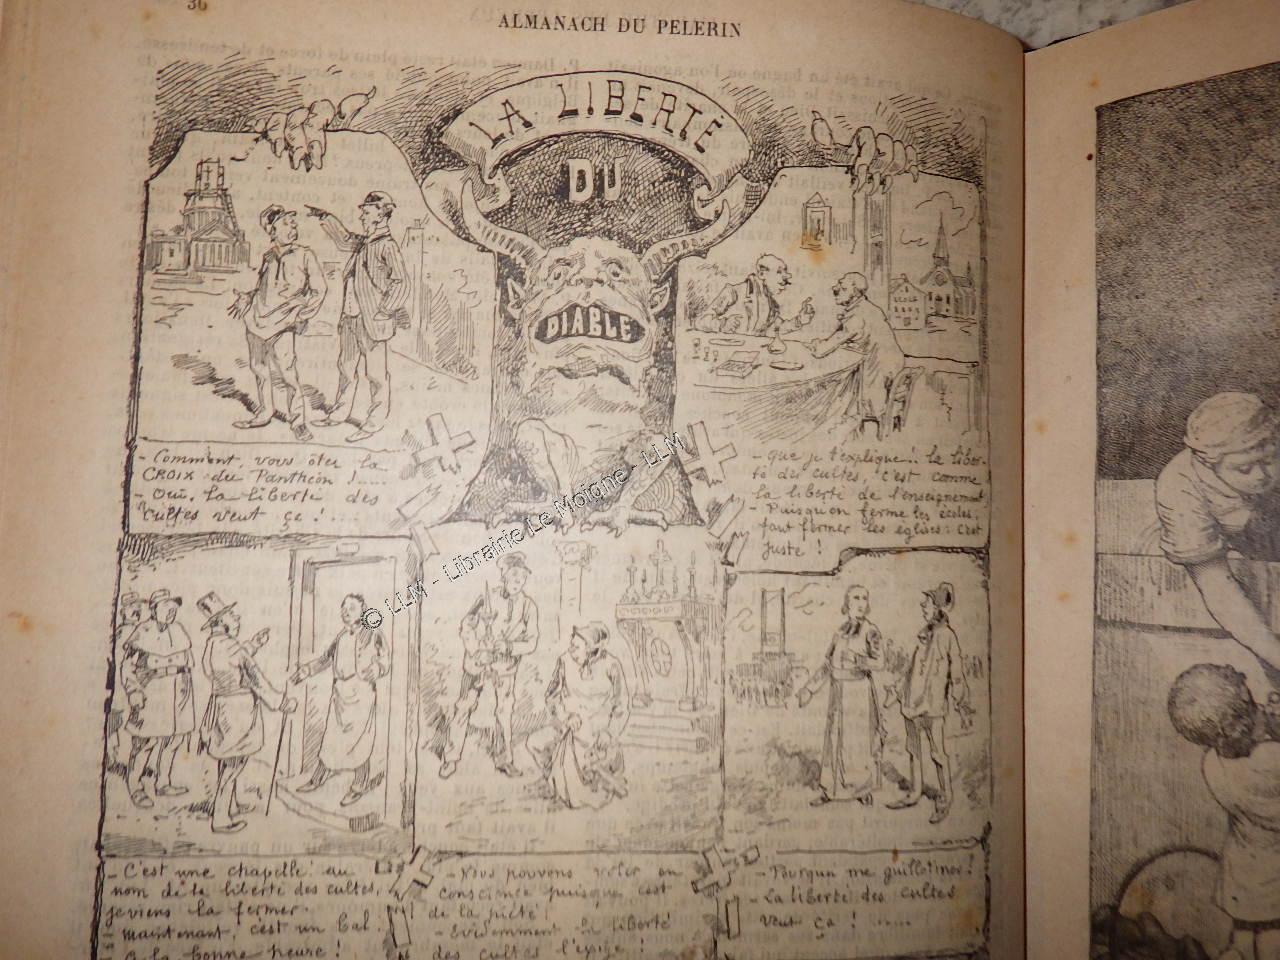 36
ALMANACH DU PELERIN
LA LIBERTÉ
DU
DIABLE
- Comment, vous ôter la
CROIX du Panthéon !....
- Oui, la liberté des
cultes veut ça !....
- Que je t'explique ! la liber-
té des cultes, c'est comme
la liberté de l'enseignement
- Puisqu'on ferme les écoles,
faut fermer les églises : c'est
juste !
ECOLE
- C'est une chapelle : au
nom de la liberté des cultes,
je viens la fermer.
- Maintenant, c'est un bal.
A la bonne heure !
- Nous pouvons voler en
conscience puisque c'est
de la piété
- Evidemment la liberté
des cultes l'exige !
- Pourquoi me guillotiner !
- La liberté des cultes
veut ça ! .....
© LLM - Librairie Le Moigne - LLM